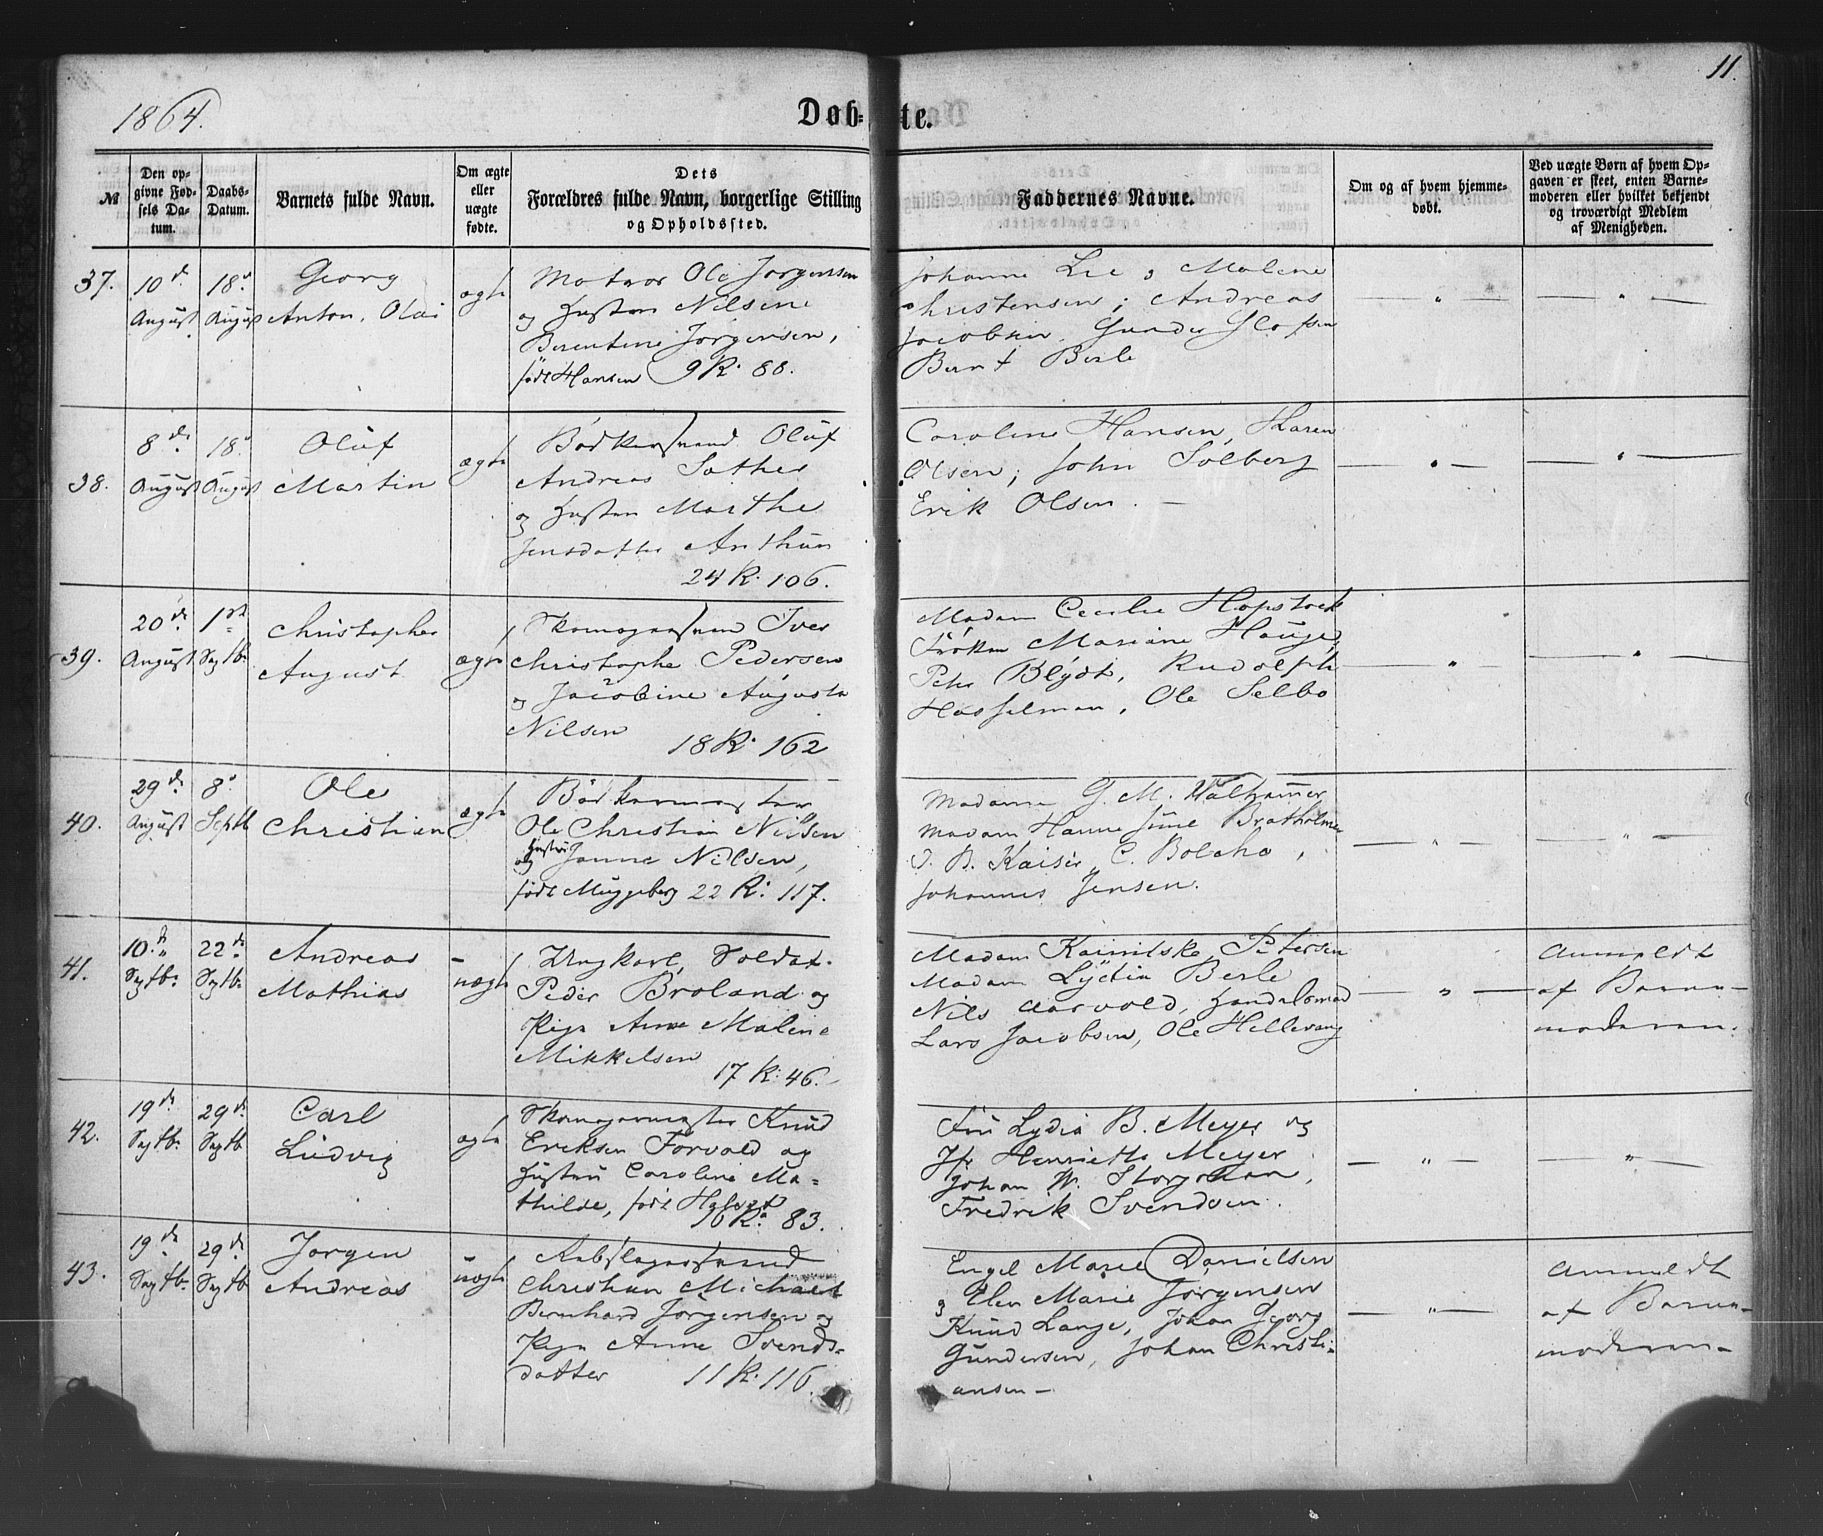 1864.
Døbte.
11.
№
Den opgivne Fødsels Datum.
Daabs-Datum.
Barnets fulde Navn.
Om ægte eller uægte fødte.
Dets Forældres fulde Navn, borgerlige Stilling og Opholdssted.
Faddernes Navne.
Om og af hvem hjemmedøbt.
Ved uægte Børn af hvem Opgaven er skeet, enten Barnemoderen eller hvilket bekjendt og troværdigt Medlem af Menigheden.
37.
10d August
18d August
Georg
Anton, Olai
ægte
Matros Ole Jørgensen
og Hustru Nilsine
Berentine Jørgensen,
født Hansen 9 R. 88.
Johanne Lie, Malene
Christensen; Andreas
Jacobsen, Gunder
Bernt Berle
38.
8de August
18d August
Oluf
Martin
ægte
Bødkersvend Oluf
Andreas Sather
og Hustru Marthe
Jensdatter Anthun
24 R. 106.
Caroline Hansen, Karen
Olsen; John Solberg
Erik Olsen. —
39.
20de August
1ste Septb.
Christopher
August
ægte
Skomagersvend Iver
Christopher Pedersen
og Jacobine Augusta
Nilsen 18 R. 162
Madam Cecilie Hopstock
Frøken Mariane Hauge,
Peter Blydt, Rudolph
Hasselman, Ole Selbo
40.
29de August
8d Septb
Ole
Christian
ægte
Bødkermester
Ole Christian Nilsen
og Hustru Janne Nilsen,
født Muggeberg 22 R. 117.
Madame G. M. Walhammer
Madam Hanne Bratholmer
J. B. Kaiser, C. Bolcho,
Johannes Jensen.
41.
10de Septb.
22de Septb.
Andreas
Mathias
uægte
Soldat
Peder Broland og
Pige Anne Malene
Mikkelsen 17 R. 46.
Madam Petersen
Madam Lydia Berle
Nils Aarvold, Handelsmad
Lars Jacobsen, Ole Hellevang
Anmeldt
af Barne-
moderen.
42.
19de Septb.
29de Septb.
Carl
Ludvig
ægte
Skomagermester Knud
Eriksen Forvald og
Hustru Caroline Ma=
thilde, født 16 R. 83.
Fru Lydia B. Meyer og
Jfr Henriette Meyer
Johan W. Storjohan,
Fredrik Svendsen.
43.
19de Septb.
29de Septb.
Jørgen
Andreas
uægte
Rebslagersvend
Christian Michael
Bernhard Jørgensen og
Pige Anne Svends-
datter 11 R. 116.
Engel Marie Danielsen
og Elen Marie Jørgensen
Knud Lange, Johan Georg
Gundersen, Johan Christi-
ansen —
Anmeldt
af Barne-
moderen —